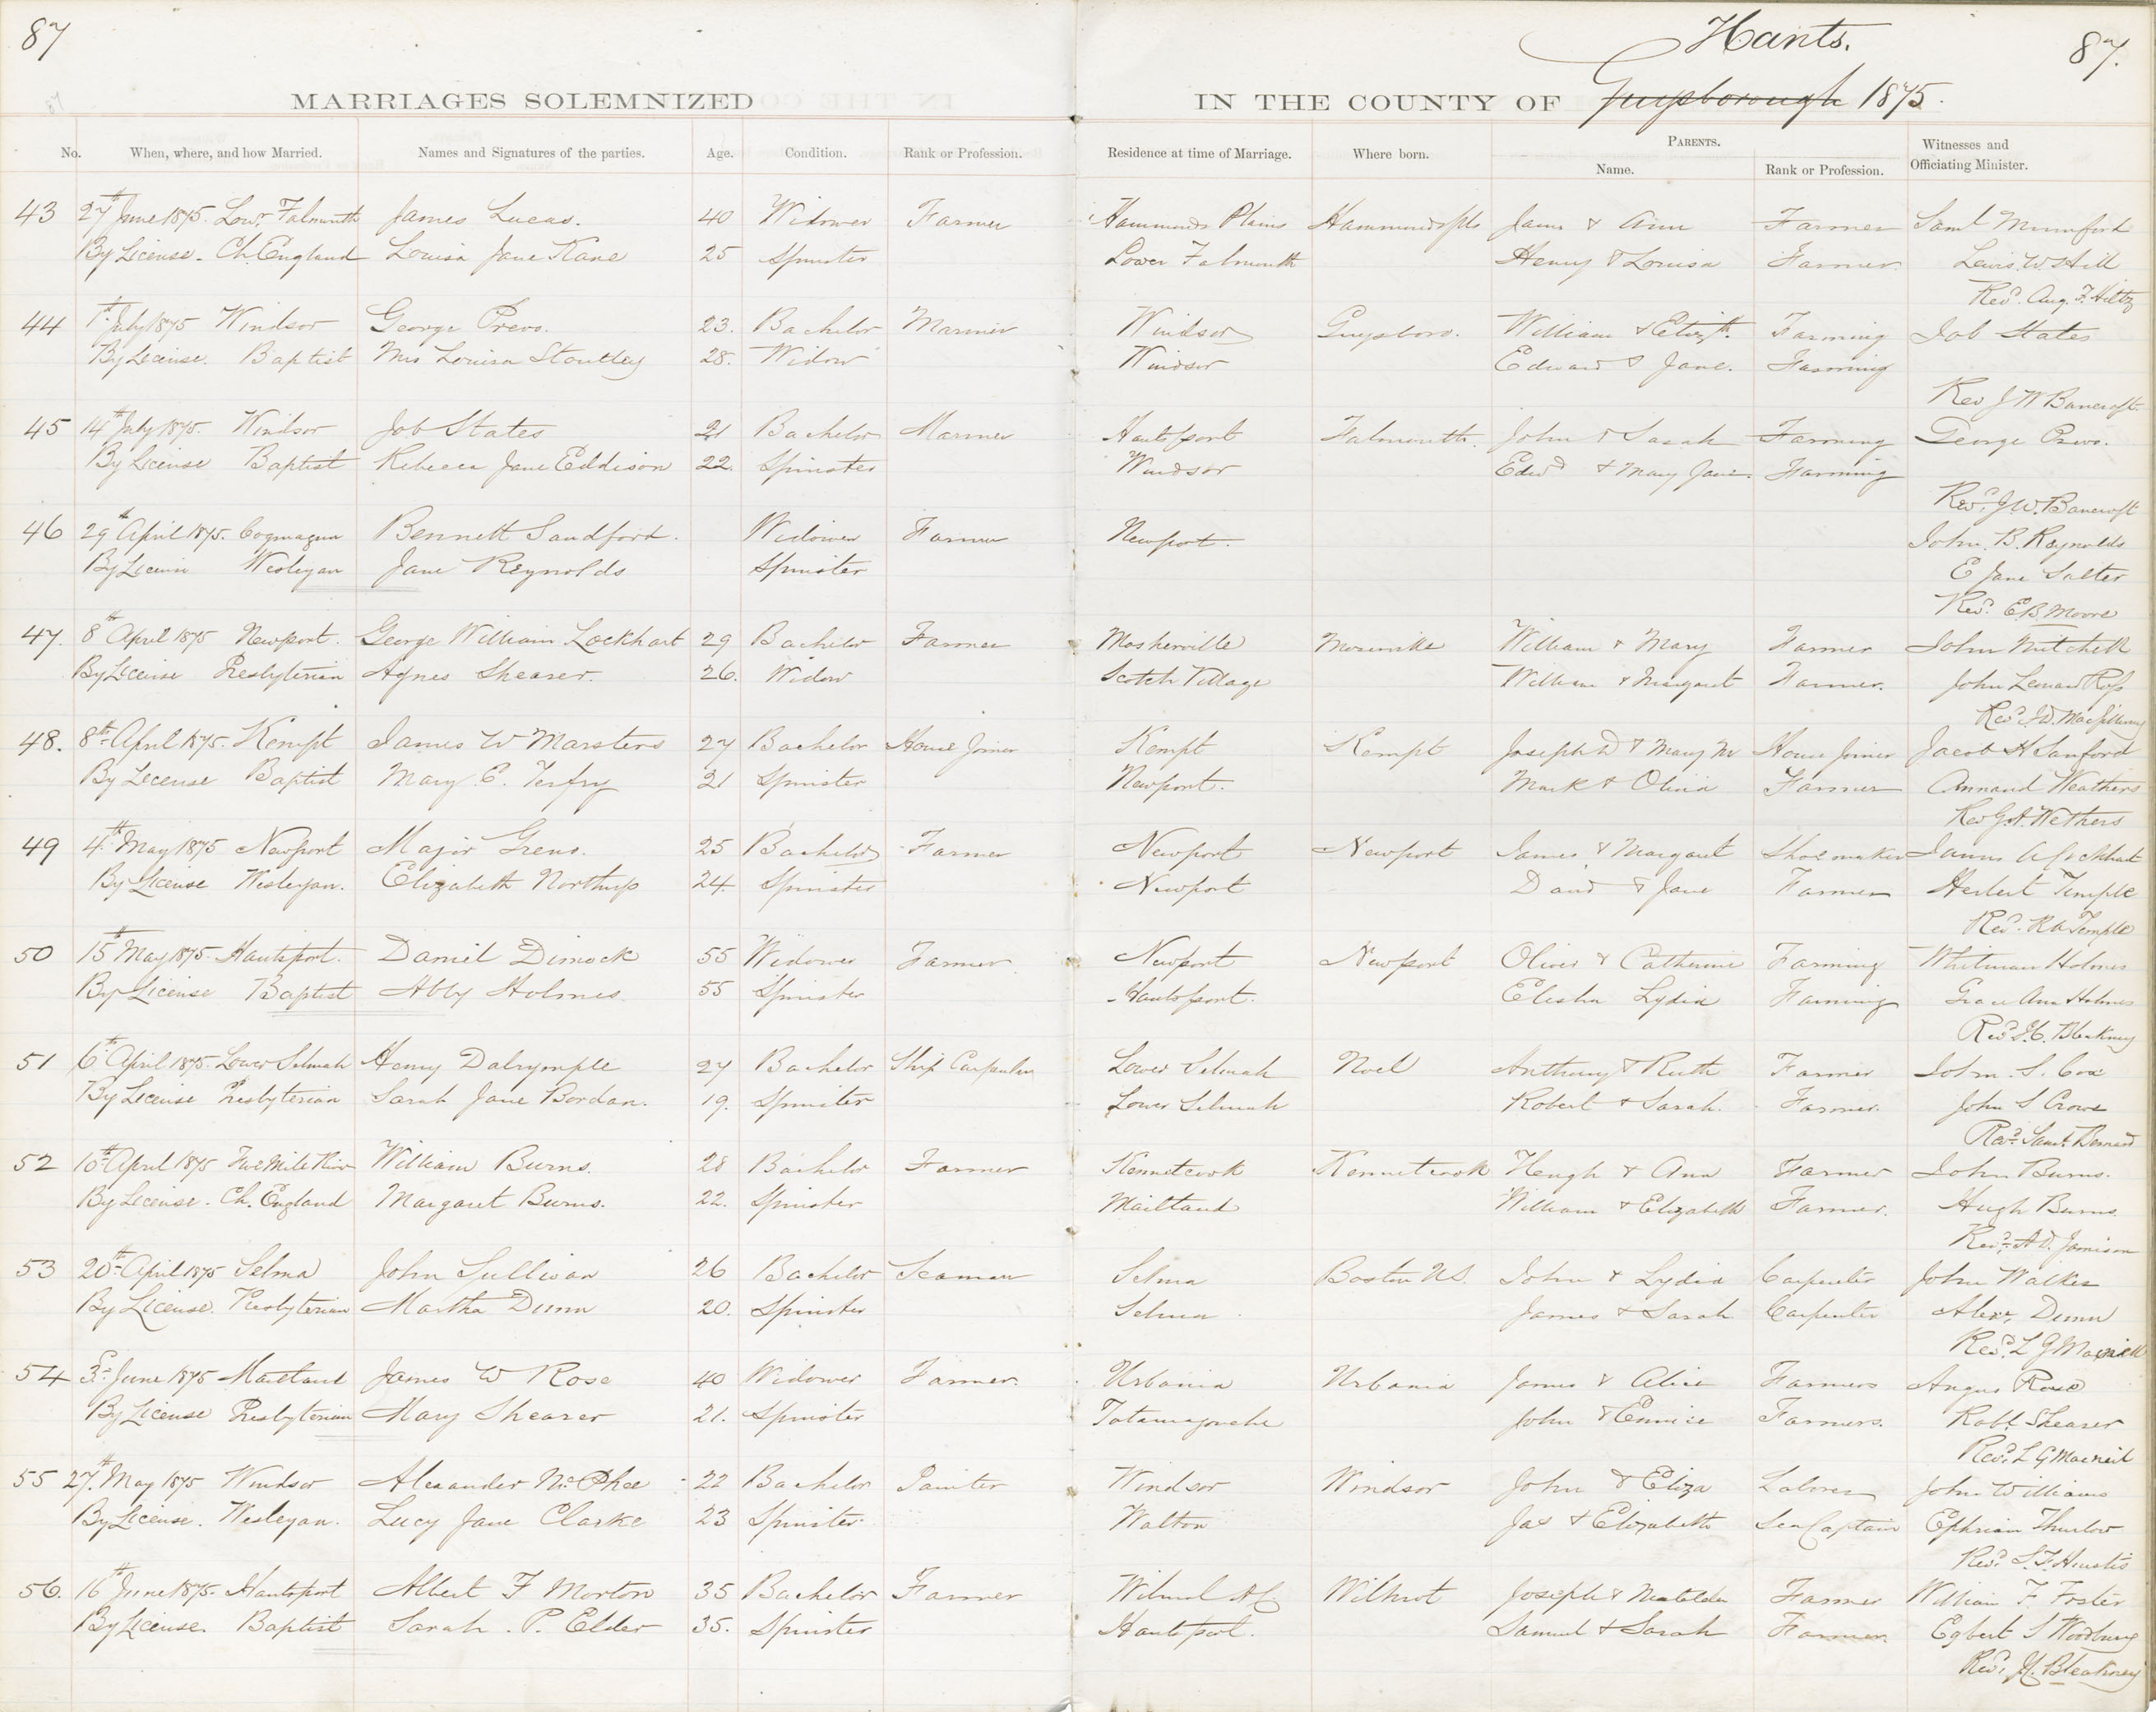 87
Hants.
87.
MARRIAGES SOLEMNIZED IN THE COUNTY OF Guysborough 1875.
No. When, where, and how Married. Names and Signatures of the parties. Age. Condition. Rank or Profession. Residence at time of Marriage. Where born. PARENTS. Name. Rank or Profession. Witnesses and Officiating Minister.
43 27th June 1875. Lowr. Falmouth James Lucas. 40 Widower Farmer Hammonds Plains Hammonds Pls James & Ann Farmer Saml Mumford
By License. Ch. England Louisa Jane Kane 25 Spinster Lower Falmouth Henry & Louisa Farmer. Lewis W. Hill
Revd. Aug. F. Hiltz
44 1st July 1875 Windsor George Prevo. 23. Bachelor Mariner Windsor Guysboro. William & Elizth. Farming Job States
By License. Baptist Mrs Louisa Stoutley 28. Widow Windsor Edward & Jane. Farming
Rev J W Bancroft.
45 14th July 1875. Windsor Job States 21 Bachelor Mariner Hantsport Falmouth. John & Sarah Farming George Prevo.
By License Baptist Rebecca Jane Eddison 22. Spinster Windsor Edwd & Mary Jane. Farming
Revd. J. W. Bancroft
46 29th April 1875. Cogmagun Bennett Sandford. Widower Farmer Newport. John. B. Reynolds
By License Wesleyan Jane Reynolds Spinster E Jane Salter
Revd. E. B. Moore
47. 8th April 1875 Newport. George William Lockhart 29 Bachelor Farmer Mosherville William & Mary Farmer John Mitchell
By License Presbyterian Agnes Shearer. 26. Widow Scotch Village William & Margaret Farmer. John Leonard Ross
Revd. J. D. MacGillivray
48. 8th April 1875. Kempt James W Marsters 27 Bachelor House Joiner Kempt Kempt Joseph D & Mary M House Joiner Jacob H Sanford
By License Baptist Mary. E. Terfry 21 Spinster Newport. Mark & Olivia Farmer Annand Weathers
Rev G. A. Wethers
49 4th May 1875 Newport Major Greno. 25 Bachelor Farmer Newport Newport James & Margaret Shoemaker James A Lockhart
By License Wesleyan. Elizabeth Northup 24. Spinster Newport David & Jane Farmer Herbert Temple
Revd. R A Temple
50 15th May 1875. Hantsport. Daniel Dimock 55 Widower Farmer Newport Newport Oliver & Catherine Farming Whitman Holmes
By License Baptist Abby Holmes. 55 Spinster Hantsport. Elisha Lydia Farming Grace Ann Holmes
Revd. J. C. Bleakney
51 6th April 1875. Lower Selmah Henry Dalrymple 27 Bachelor Ship Carpenter Lower Selmah Noel Anthony & Ruth Farmer John. S. Cox
By License Presbyterian Sarah Jane Bordan. 19. Spinster Lower Selmah Robert & Sarah. Farmer. John S Crowe
Revd. Saml. Bernard
52 10th April 1875 Five Mile River William Burns. 28 Bachelor Farmer Kennetcook Kennetcook Heugh & Ann Farmer John Burns.
By License. Ch. England Margaret Burns. 22. Spinster Maitland William & Elizabeth Farmer. Hugh Burns.
Revd. A. D. Jamison
53 20th April 1875 Selma John Sullivan 26 Bachelor Seaman Selma Boston U.S. John & Lydia Carpenter John Walker
By License. Presbyterian Martha Dunn 20. Spinster Selma James & Sarah Carpenter Alexr. Dunn
Revd. L G Macneill
54 3d. June 1875 Maitland James W Rose 40 Widower Farmer. Urbania Urbania James & Alice Farmers Angus Rose
By License Presbyterian Mary Shearer 21. Spinster Tatamagouche John & Eunice Farmers. Robt Shearer
Revd. L G Macneil
55 27th. May 1875 Windsor Alexander McPhee 22 Bachelor Painter Windsor Windsor John & Eliza Laborer John Williams
By License. Wesleyan. Lucy Jane Clarke 23 Spinster Walton Jas & Elizabeth Sea Captain Ephriam Thurlow
Revd. S. F. Huestis
56. 16th June 1875. Hantsport Albert F Morton 35 Bachelor Farmer Wilmot Wilmot Joseph & Matilda Farmer William F. Foster
By License. Baptist Sarah. P. Elder 35. Spinster Hantsport. Samuel & Sarah Farmer. Egbert S Woodbury
Revd. Bleakney